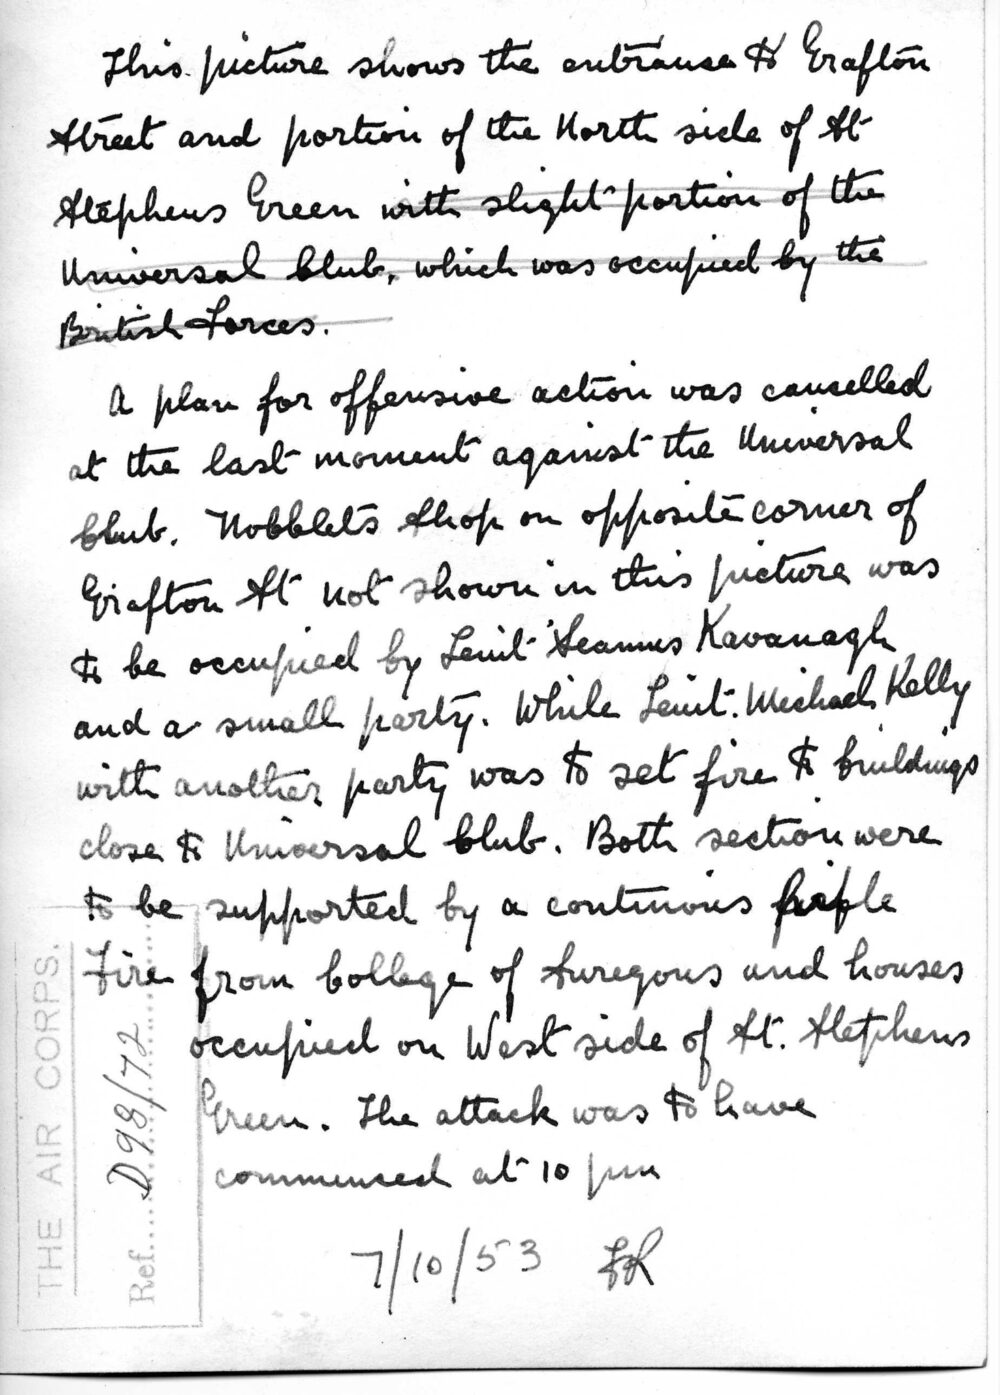 This picture shows the entrance to Grafton
Street and portion of the North side of St
Stephens Green with slight portion of the
Universal Club, which was occupied by the
British Forces.
A plan for offensive action was cancelled
at the last moment against the Universal
Club. Nobblets Shop on opposite corner of
Grafton St not shown in this picture was
to be occupied by Leiut Seamus Kavanagh
and a small party. While Leiut. Michael Kelly
with another party was to set fire to buildings
close to Universal Club. Both section were
to be supported by a continuous rifle
Fire from College of Suregons and houses
occupied on West side of St. Stephens
Green. The attack was to have
commenced at 10 pm
7/10/53
THE AIR CORPS.
Ref. D98/72